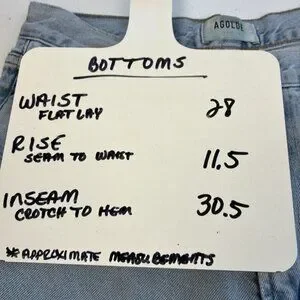 AGOLDE
BOTTOMS
WAIST 28
FLAT LAY
RISE
SEAM TO WAIST 11.5
INSEAM
CROTCH TO HEM 30.5
*APPROXIMATE MEASUREMENTS